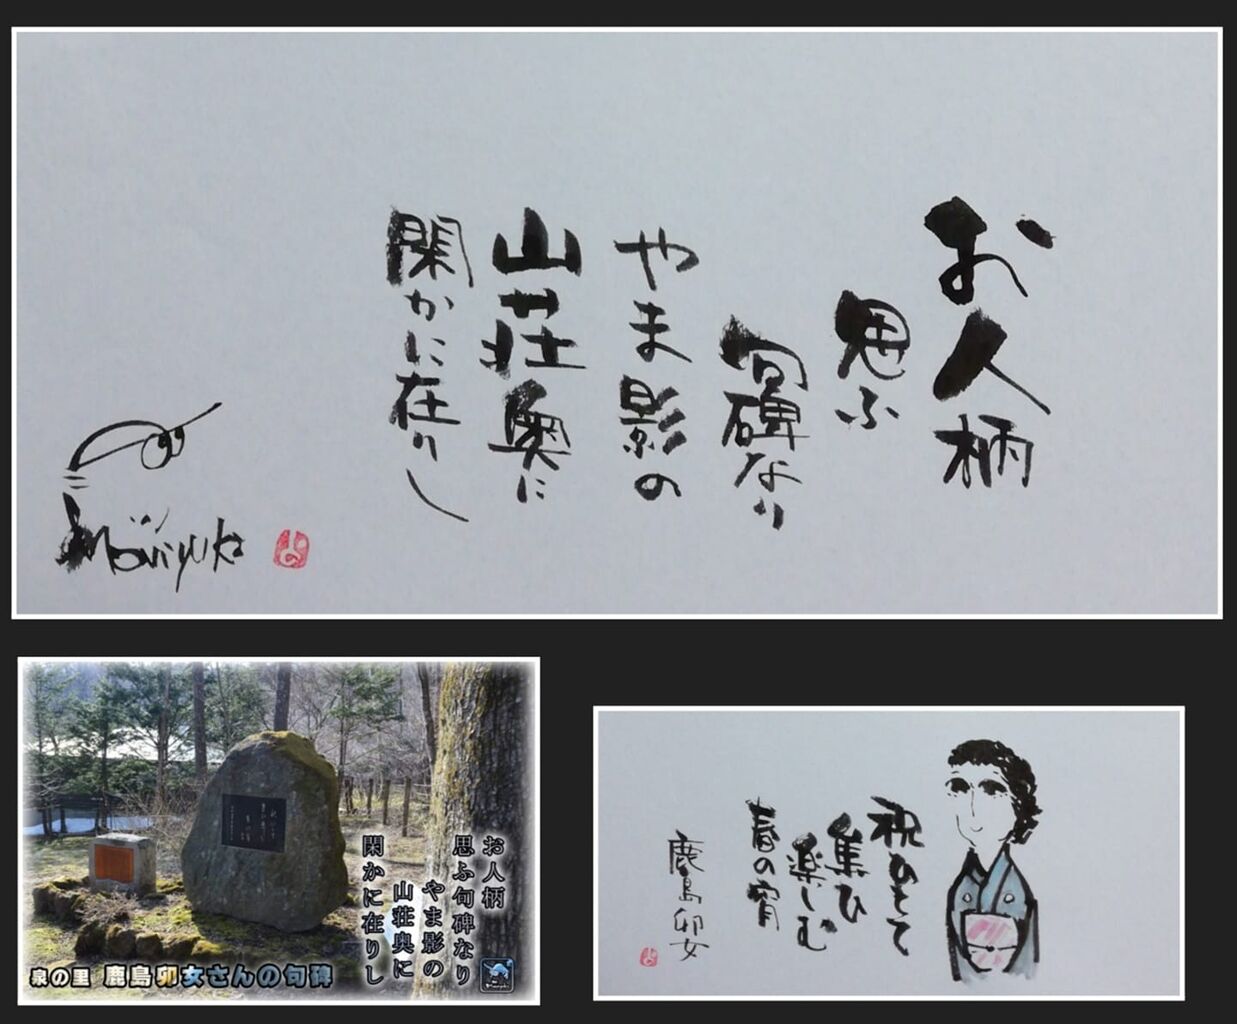 お人柄
思ふ
句碑なり
やま影の
山荘奥に
閑かに在りし
Moriyuki
お人柄
思ふ句碑なり
やま影の
山荘奥に
閑かに在りし
泉の里 鹿島卯女さんの句碑
祝ひとて
集ひ
楽しむ
春の宵
鹿島卯女